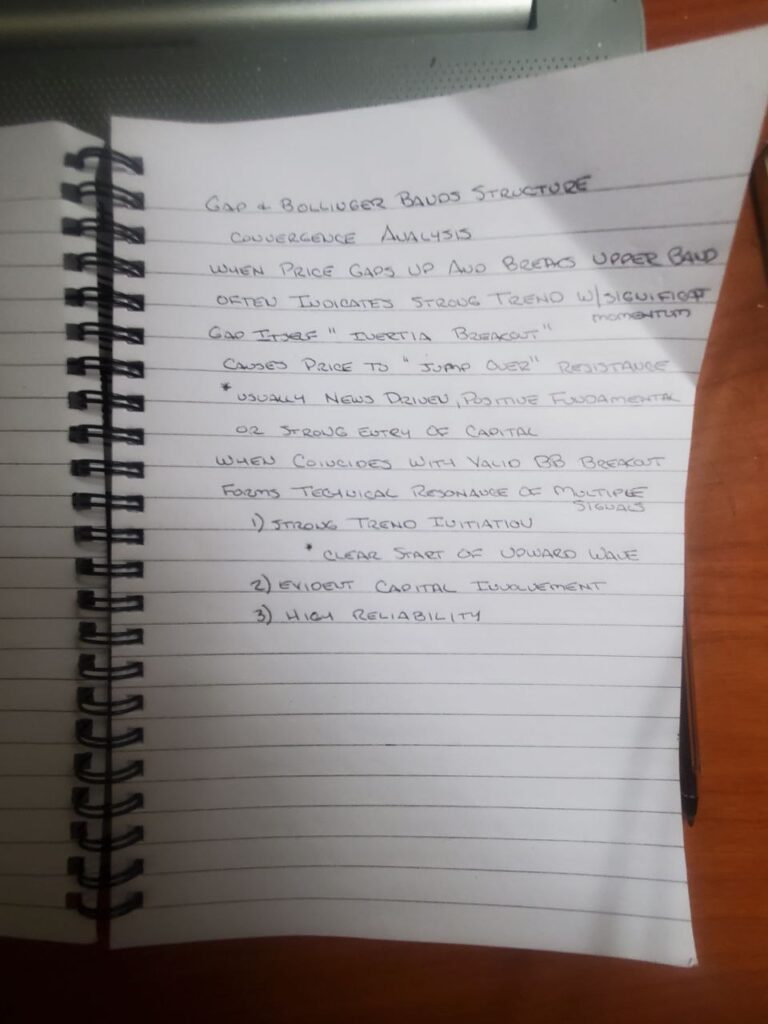 GAP & BOLLINGER BANDS STRUCTURE
CONVERGENCE ANALYSIS
WHEN PRICE GAPS UP AND BREAKS UPPER BAND
OFTEN INDICATES STRONG TREND W/SIGNIFICAT
momentum
GAP ITSELF "INERTIA BREAKOUT"
CAUSES PRICE TO "JUMP OVER" RESISTANCE
* USUALLY NEWS DRIVEN, POSITIVE FUNDAMENTAL
OR STRONG ENTRY OF CAPITAL
WHEN COINCIDES WITH VALID BB BREAKOUT
FORMS TECHNICAL RESONANCE OF MULTIPLE
SIGNALS
1) STRONG TREND INITIATION
* CLEAR START OF UPWARD WAVE
2) EVIDENT CAPITAL INVOLVEMENT
3) HIGH RELIABILITY